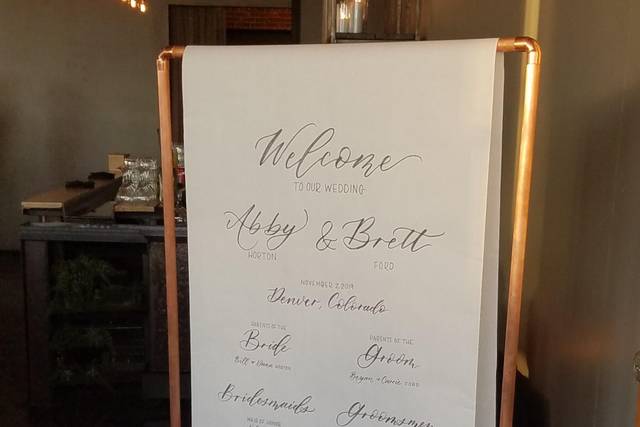 Welcome
TO OUR WEDDING
Abby & Brett
HORTON FORD
NOVEMBER 2, 2019
Denver, Colorado
PARENTS OF THE PARENTS OF THE
Bride Groom
Bill + Dana HORTON Bryan + Carrie FORD
Bridesmaids Groomsmen
MAID OF HONOR